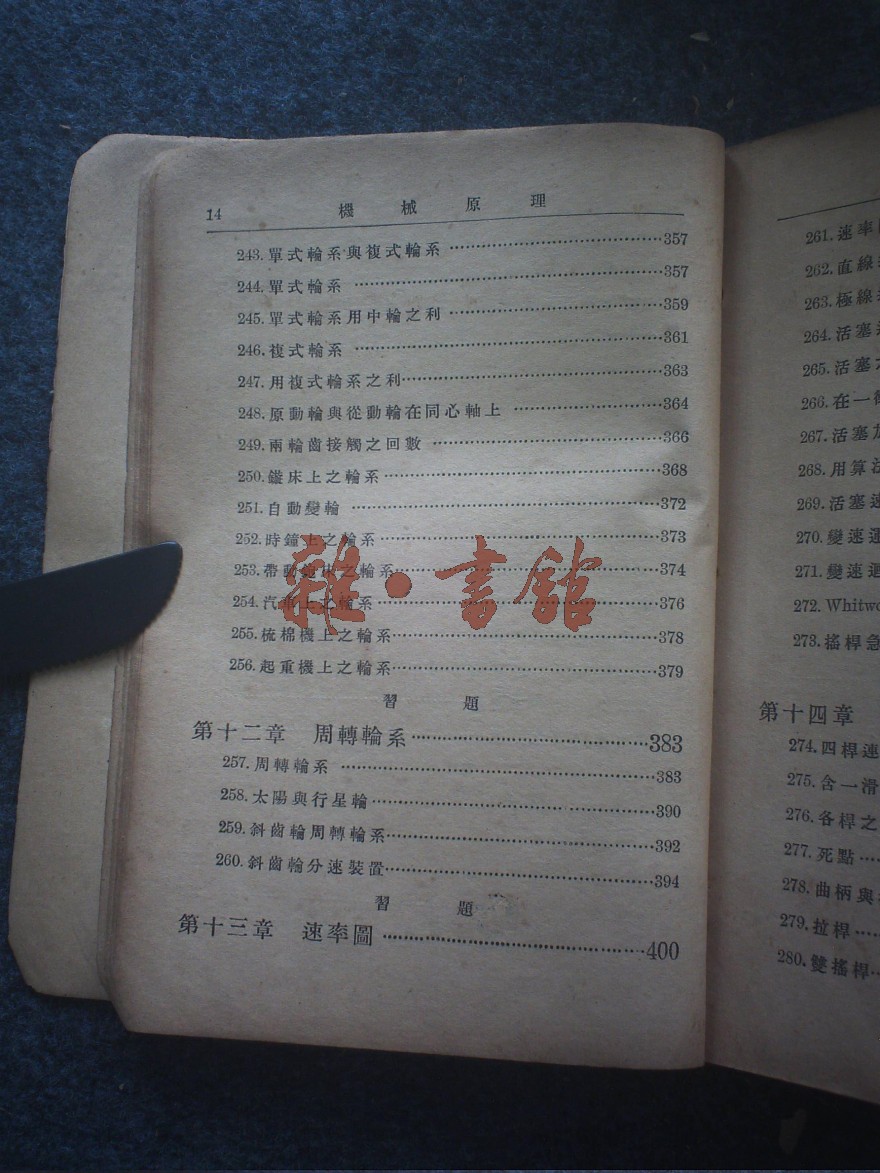 14 機械原理
243.單式輪系與複式輪系……357
244.單式輪系……357
245.單式輪系用中輪之利……359
246.複式輪系……361
247.用複式輪系之利……363
248.原動輪與從動輪在同心軸上……364
249.兩輪齒接觸之回數……366
250.鏇床上之輪系……368
251.自動變輪……372
252.時鐘上之輪系……373
253.帶動……之輪系……374
254.汽車上之輪系……376
255.梳棉機上之輪系……378
256.起重機上之輪系……379
習題
第十二章 周轉輪系……383
257.周轉輪系……383
258.太陽與行星輪……390
259.斜齒輪周轉輪系……392
260.斜齒輪分速裝置……394
習題
第十三章 速率圖……400
雜·書館
261.速率
262.直線
263.極線
264.活塞
265.活塞
266.在一
267.活塞
268.用算法
269.活塞速
270.變速運
271.變速迴
272.Whitwo
273.搖桿急
第十四章
274.四桿連
275.含一滑
276.各桿之
277.死點……
278.曲柄與
279.拉桿……
280.雙搖桿